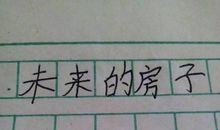 未来的房子